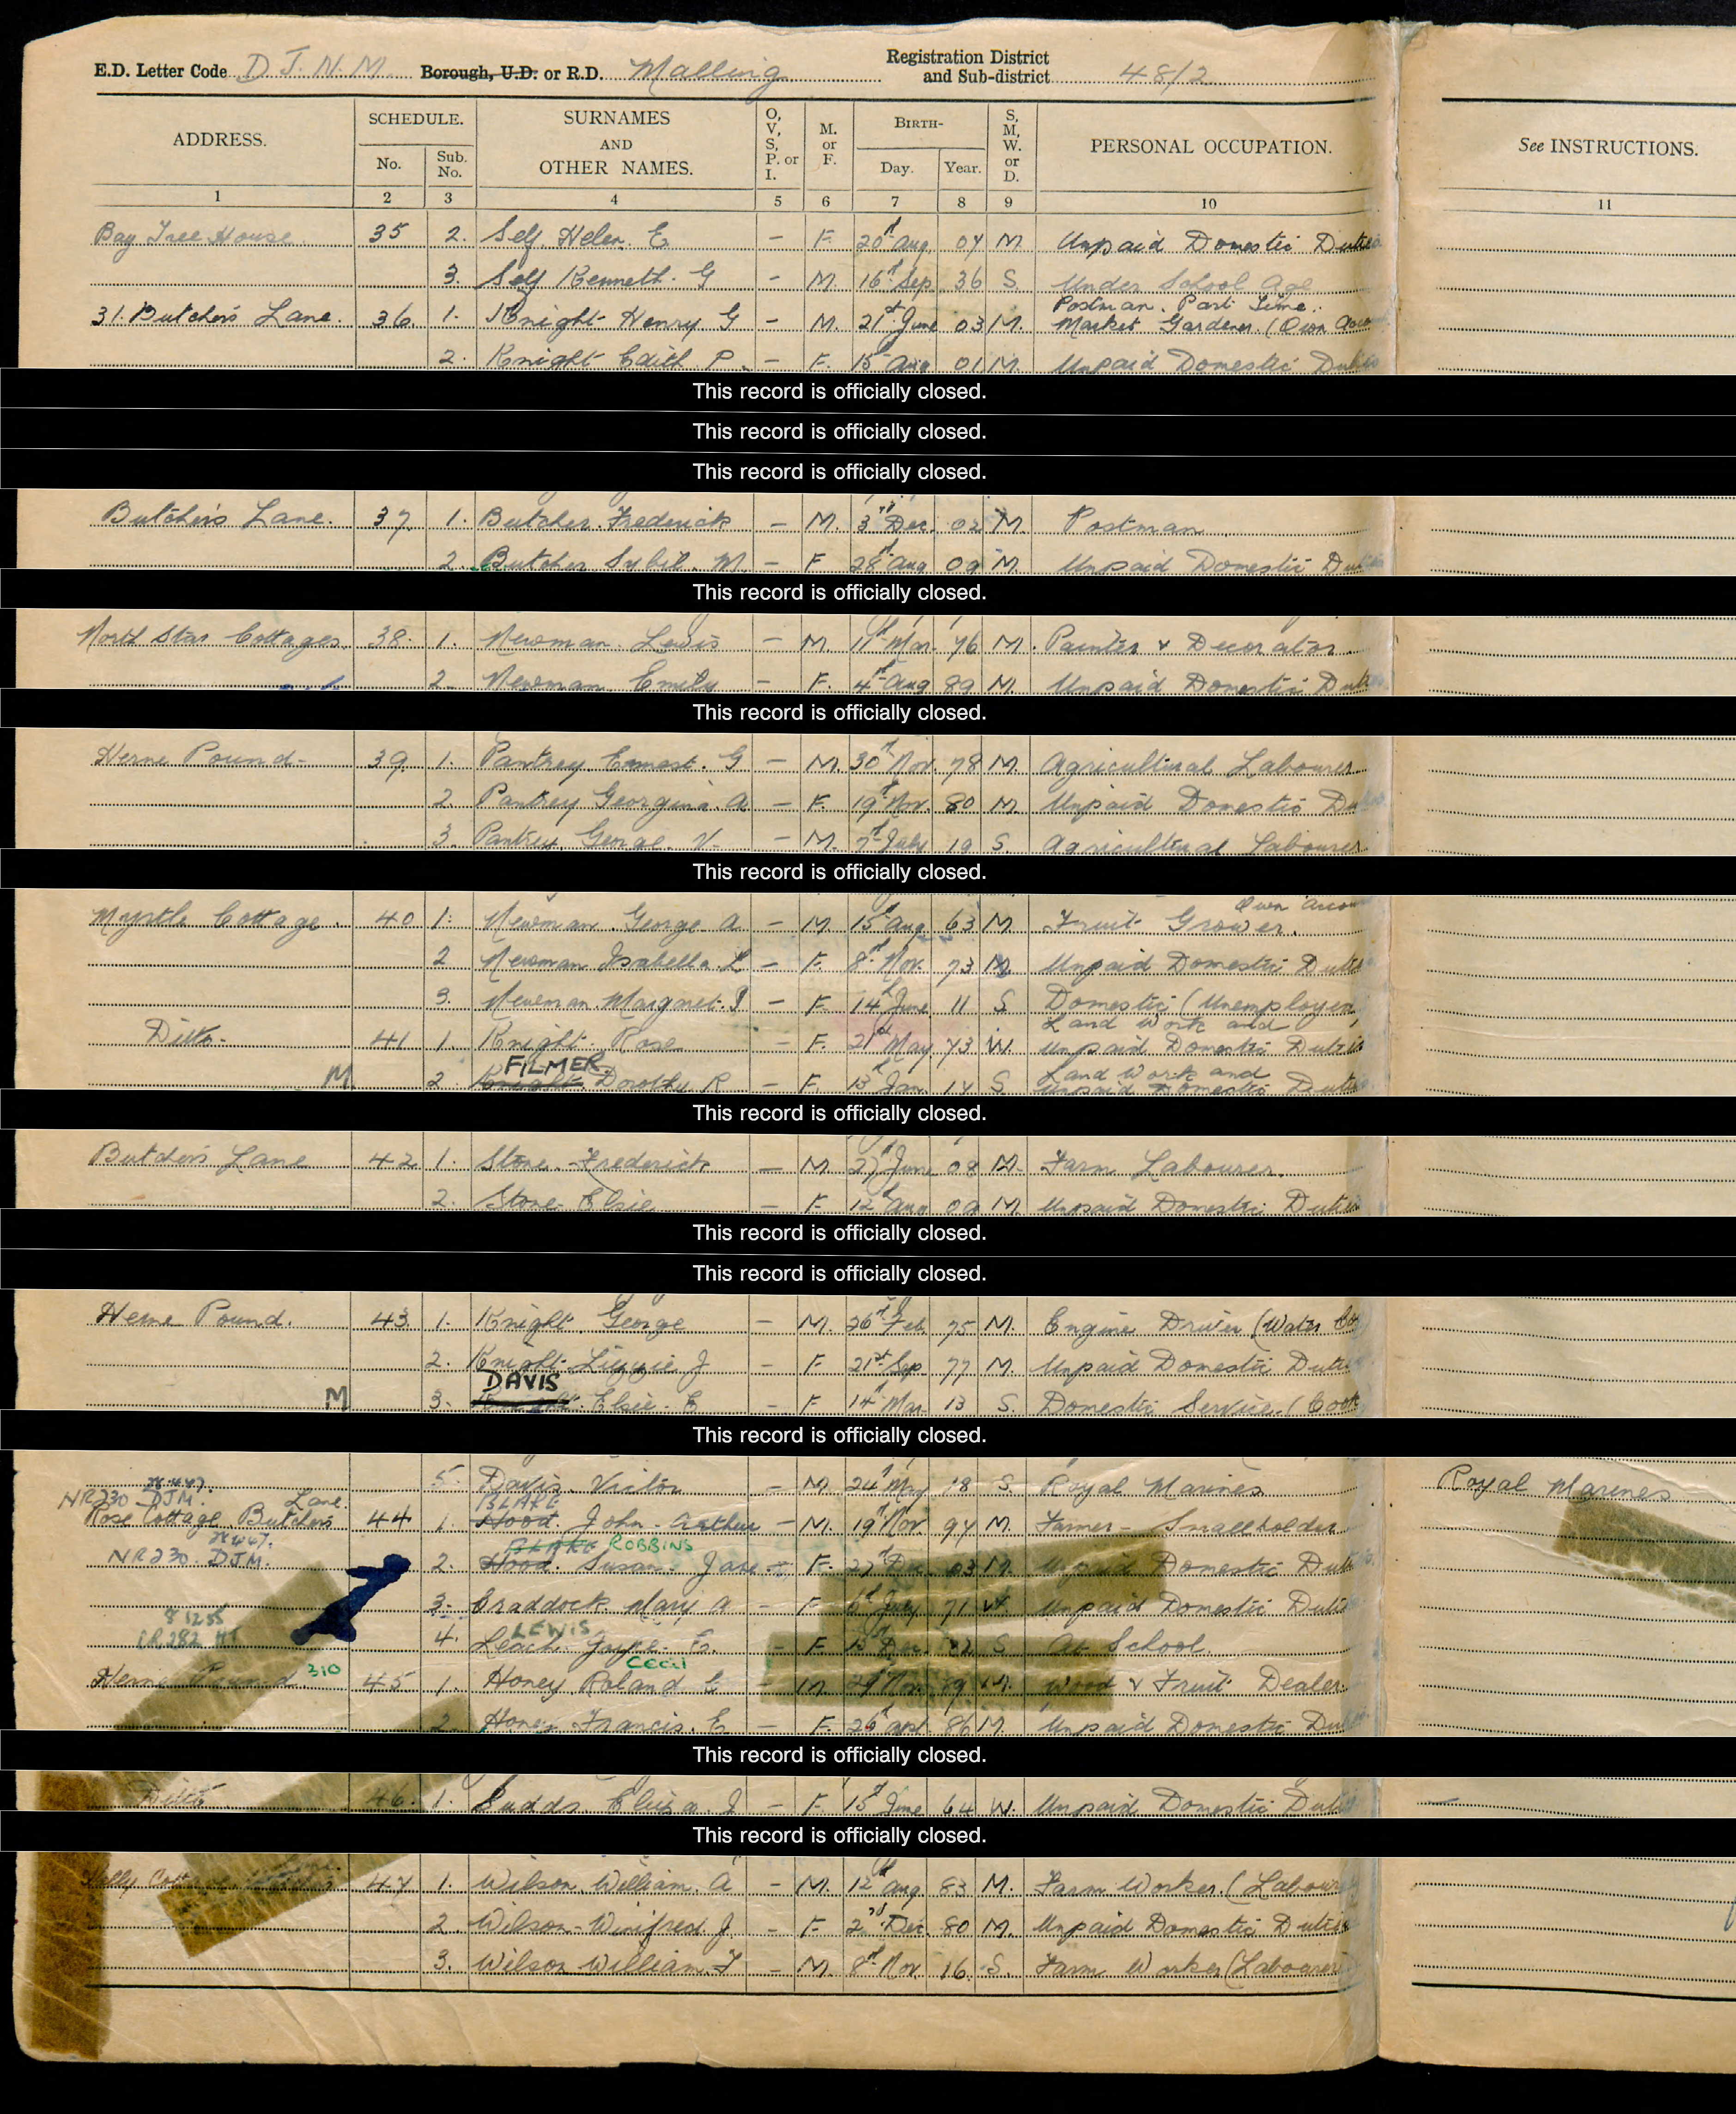 E.D. Letter Code D J. N. M. Borough, U.D. or R.D. Malling Registration District and Sub-district 48/2
ADDRESS. SCHEDULE. SURNAMES AND OTHER NAMES. O, V, S, P. or I. M. or F. BIRTH- S, M, W. or D. PERSONAL OCCUPATION. See INSTRUCTIONS.
No. Sub. No. Day. Year.
1 2 3 4 5 6 7 8 9 10 11
Bay Tree House 35 2. Self Helen. E - F. 20th Aug 07 M Unpaid Domestic Duties
3. Self Kenneth. G - M. 16th Sep 36 S. Under School Age
Postman. Part Time.
31. Butchers Lane. 36. 1. Knight Henry G - M. 21st June 03 M. Market Gardener. (Own
2. Knight Edith P. - F. 15th Aug 01 M. Unpaid Domestic
This record is officially closed.
This record is officially closed.
This record is officially closed.
Butchers Lane. 37 1. Butcher Frederick - M. 3rd Dec. 02 M. Postman
2. Butcher Sybil. M. - F 28th Aug 09 M Unpaid Domestic
This record is officially closed.
North Star Cottages. 38. 1. Newman. Lewis - M. 11th Mar. 76 M. Painter & Decorator
2. Newman Emily - F. 4th Aug 89 M. Unpaid Domestic
This record is officially closed.
Herne Pound- 39 1. Pantrey Ernest. G - M. 30th Nov. 78 M. Agricultural Labourer
2. Pantrey Georgina. A - F. 19th Nov. 80 M. Unpaid Domestic
3. Pantrey. George. V. - M. 7th July 19 S. Agricultural Labourer
This record is officially closed.
Own
Myrtle Cottage. 40 1. Newman. George. A - M. 15th Aug 63 M. Fruit Grower.
2 Newman Isabella. L - F. 8th Nov. 73 M. Unpaid Domestic Duties
3. Newman. Margaret. I - F. 14th June 11 S. Domestic (Unemployed
Land Work and
Ditto. 41 1. Knight. Rose - F. 21st May 73 W. Unpaid Domestic Duties
FILMER. Land Work and
M. 2. Knight. Dorothy R - F. 13th Jan. 14 S. Unpaid Domestic
This record is officially closed.
Butchers Lane 42 1. Stone. Frederick - M. 27th June 08 M. Farm Labourer.
2. Stone Elsie - F. 12th Aug 09 M. Unpaid Domestic Duties
This record is officially closed.
This record is officially closed.
Herne Pound. 43. 1. Knight. George - M. 26th Feb. 75 M. Engine Driver (Water
2. Knight. Lizzie. J - F 21st Sep 77 M. Unpaid Domestic
DAVIS
M 3. Elsie. E - F 14th Mar. 13 S. Domestic Service. (Cook
This record is officially closed.
5. Davis. Victor - M. 24th 18 S. Royal Marines Royal Marines
NR230 DJM. Lane. BLAKE
Rose Cottage Butchers 44 1. Hood. John. Arthur - M. 19th Nov 94 M. Farmer - Smallholder
BLAKE ROBBINS
NR230 DJM. 2. Hood. Susan. Jane - F. 27th Dec. 03 M. Unpaid Domestic
3. Craddock. Mary A - F July 71 W. Unpaid Domestic
81255 LEWIS
LR282 HT 4. Leach. Joyce. E. - F 13th Dec. S At School.
310 Cecil
Herne Pound. 45 1. Honey Roland E - M. M. Wood & Fruit Dealer
2. Honey Francis. E - F. 26th 86 M Unpaid Domestic
This record is officially closed.
Ditto 46. 1. Sudds. Eliza. J - F 15th June 64 W. Unpaid Domestic
This record is officially closed.
Holly 47 1. Wilson. William. A - M. 12th Aug 83 M. Farm Worker. (Labourer
2. Wilson Winifred. J. - F 2nd Dec. 80 M. Unpaid Domestic Duties
3. Wilson William. F - M. 8th Nov. 16 S. Farm Worker (Labourer